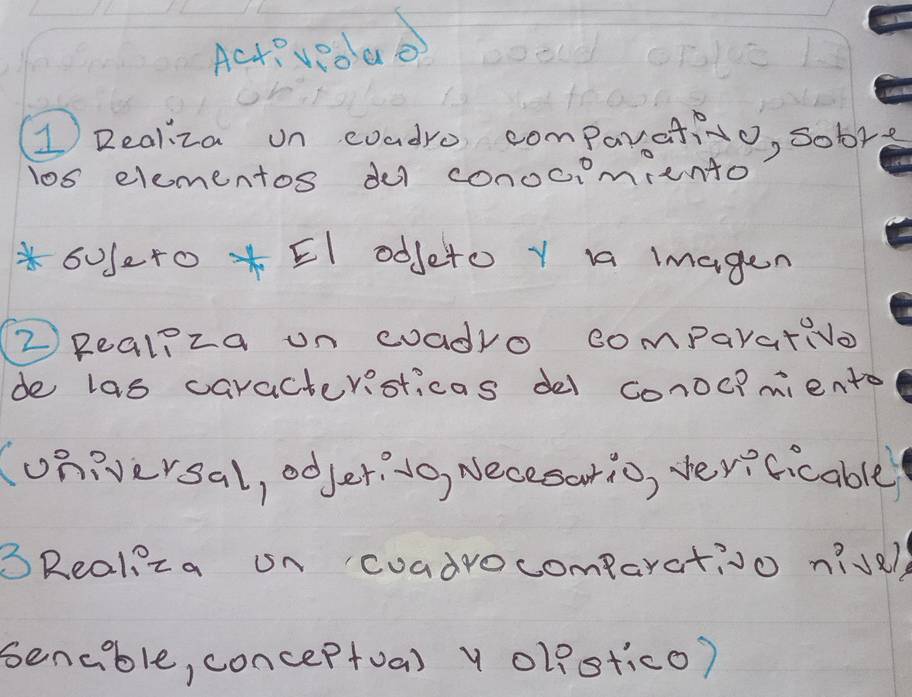 Actividad
1 Realiza un cuadro comparativo, sobre
los elementos del conocimiento
* Sujeto * El odjeto y la imagen
2 Realiza un cuadro comparativo
de las características del conocimiento
(universal, odjetivo, Necesario, verificable)
3 Realiza un cuadro comparativo nivel
sencible, conceptual y olistico)